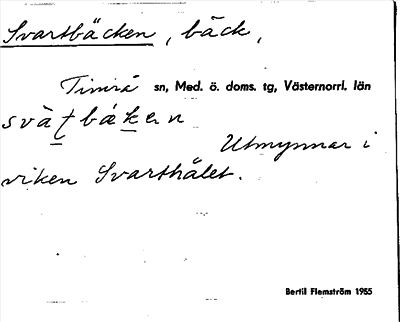 Svartbäcken, bäck,
Timrå sn, Med. ö. doms. tg, Västernorrl. län
svàt̠bák̠en
Utmynnar i
viken Svarthålet.
Bertil Flemström 1955